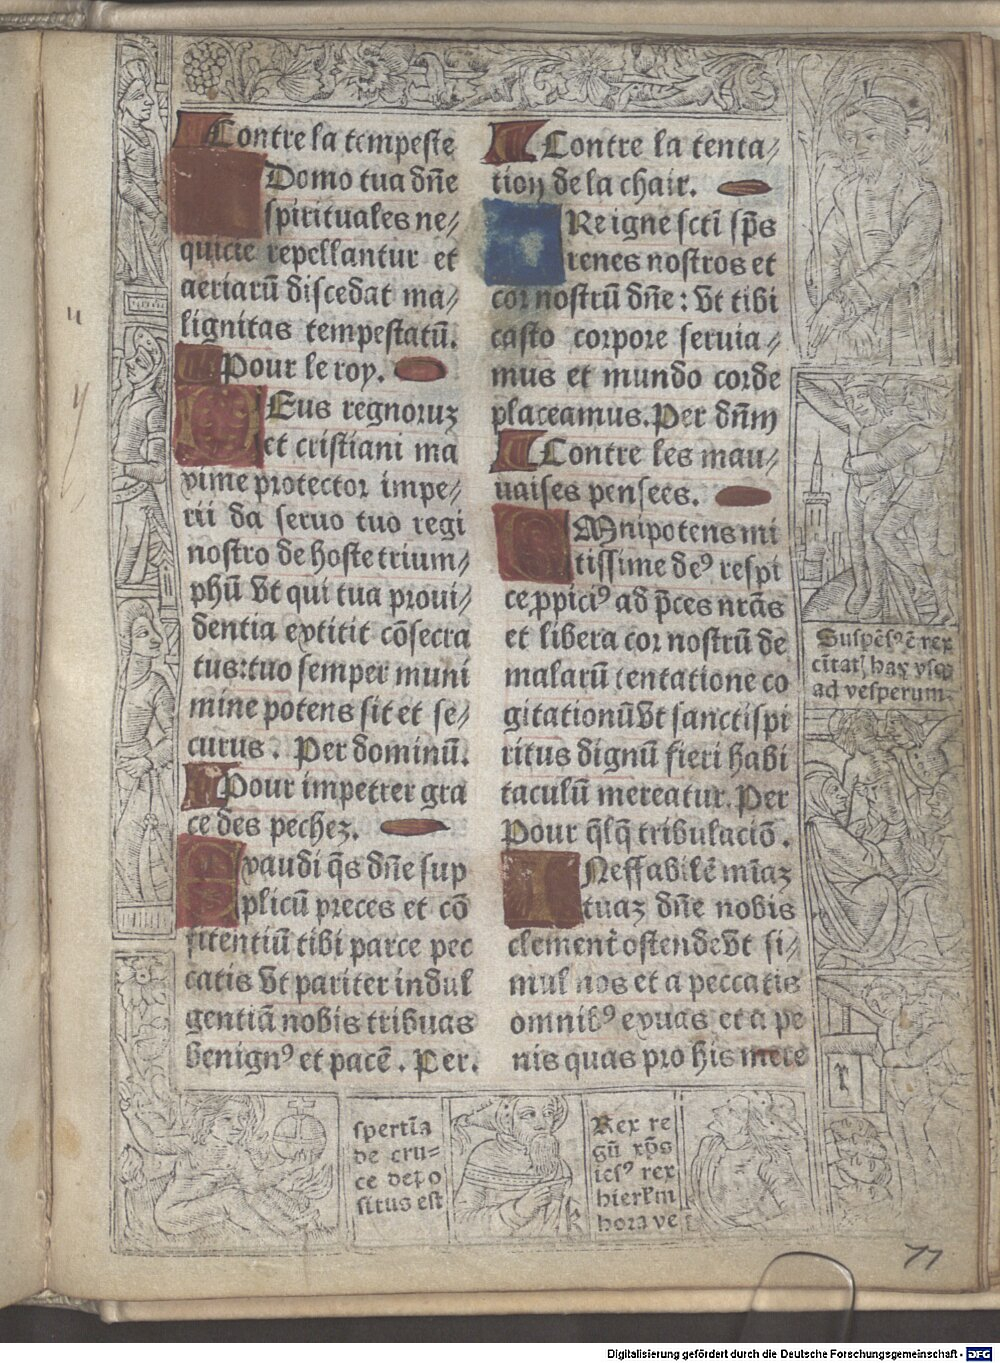 Contre la tempeste
A Domo tua dñe
spirituales ne⸗
quicie repellantur et
aeriarū discedat ma⸗
lignitas tempestatū.
Pour le roy.
DEus regnoruꝫ
et cristiani ma
xime protector impe⸗
rii da seruo tuo regi
nostro de hoste trium⸗
phū vt qui tua proui⸗
dentia extitit cōsecra
tus: tuo semper muni
mine potens sit et se⸗
curus. Per dominū.
Pour impetrer gra
ce des pechez.
Exaudi q̄s dñe sup
plicū preces et cō
fitentiū tibi parce pec
catis vt pariter indul
gentiā nobis tribuas
benignꝰ et pacē. Per.
Contre la tenta⸗
tion de la chair.
VRe igne scti sp̄s
renes nostros et
cor nostrū dñe: vt tibi
casto corpore seruia⸗
mus et mundo corde
placeamus. Per dñm
Contre les mau⸗
uaises pensees.
OMnipotens mi
tissime deꝰ respi
ce ꝓpiciꝰ ad p̄ces nrās
et libera cor nostrū de
malarū tentatione co
gitationū vt sancti spi
ritus dignū fieri habi
taculū mereatur. Per
Pour q̄lq̄ tribulaciō.
INeffabilē mīaꝫ
tuaꝫ dñe nobis
clementer ostende vt si⸗
mul nos et a peccatis
omnibꝰ exuas et a pe
nis quas pro his mere
Suspēsꝰ ē rex
ad vesperum.
spertīa
de cru=
ce depo
situs est
Rex re
gū xp̄s
iesꝰ rex
hierl'm
hora ve
k
77
Digitalisierung gefördert durch die Deutsche Forschungsgemeinschaft - DFG